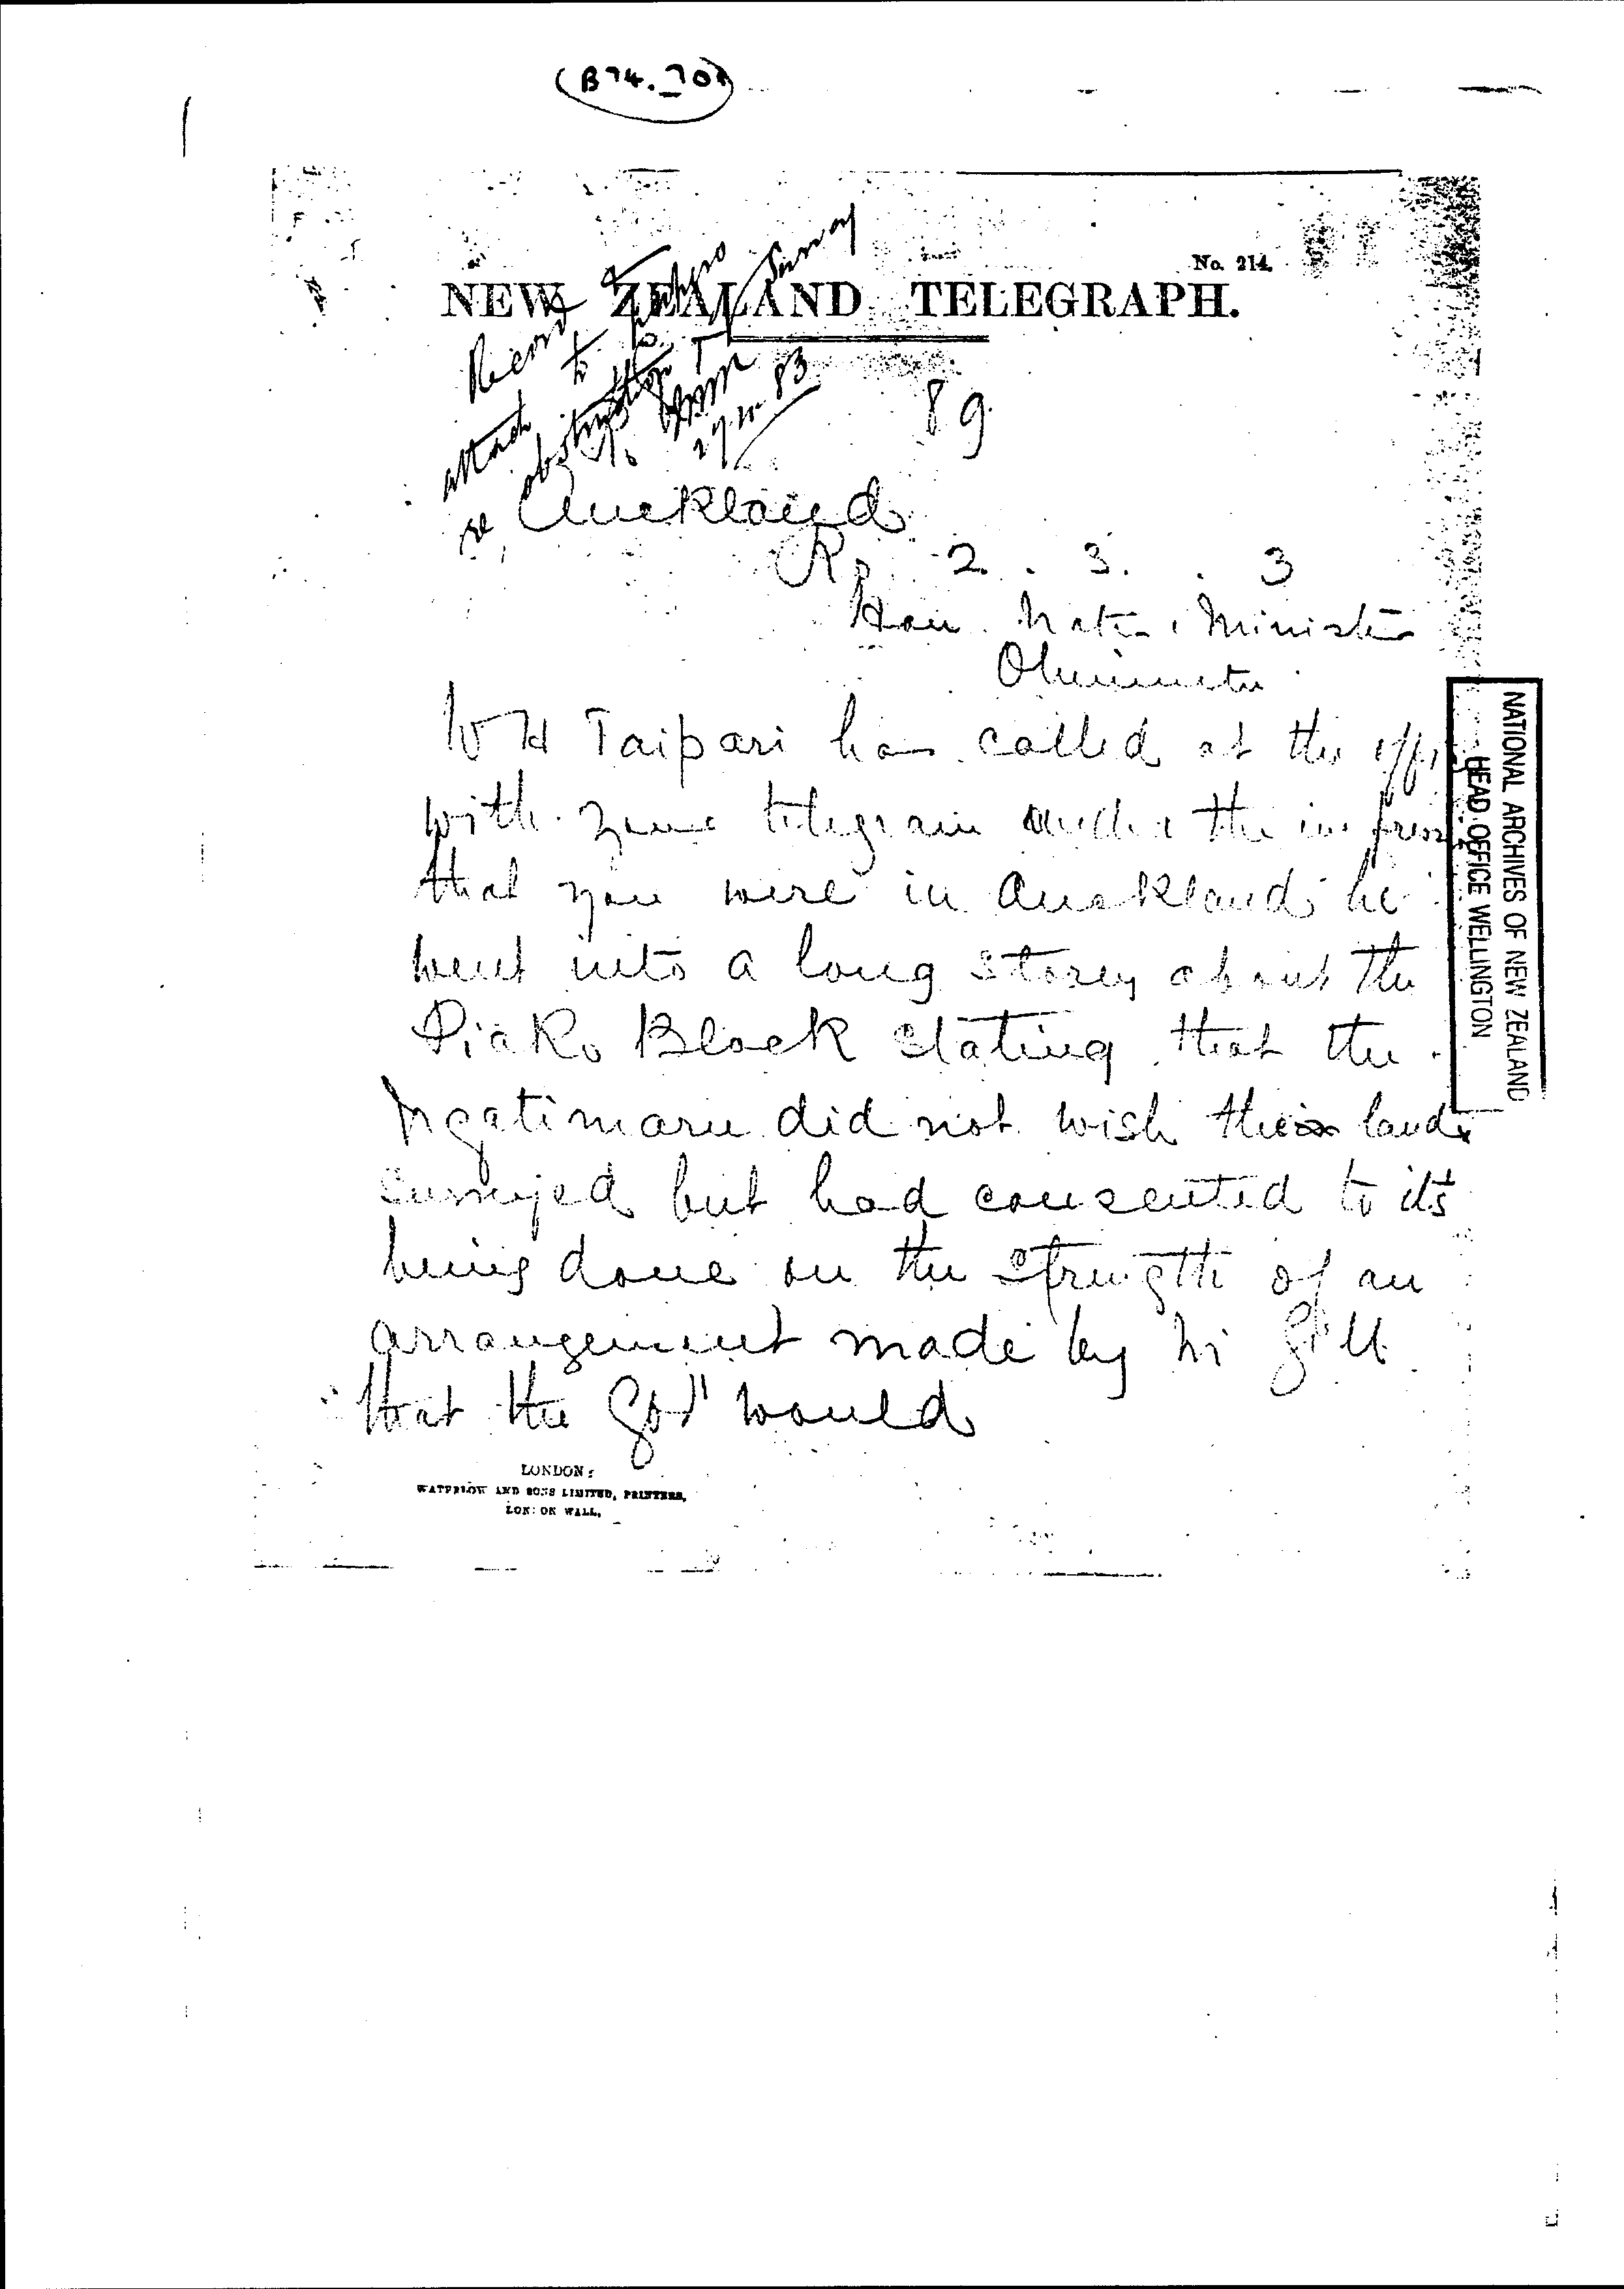 (B74.707)
No. 214.
NEW ZEALAND TELEGRAPH.
Record &
attach to papers
re obstruction to Survey
27.10.83
89
Auckland
2 . 3 . 3
Hon. Native Minister
Ohinemutu
W H Taipari has called at the office
with your telegram under the impress
that you were in Auckland he
went into a long storey about the
Piako Block stating that the
Ngatimaru did not wish their land
surveyed but had consented to its
being done on the strength of an
arrangement made by Mr Gill
that the Govt would
LONDON:
WATERLOW AND SONS LIMITED, PRINTERS,
LONDON WALL.
NATIONAL ARCHIVES OF NEW ZEALAND
HEAD OFFICE WELLINGTON